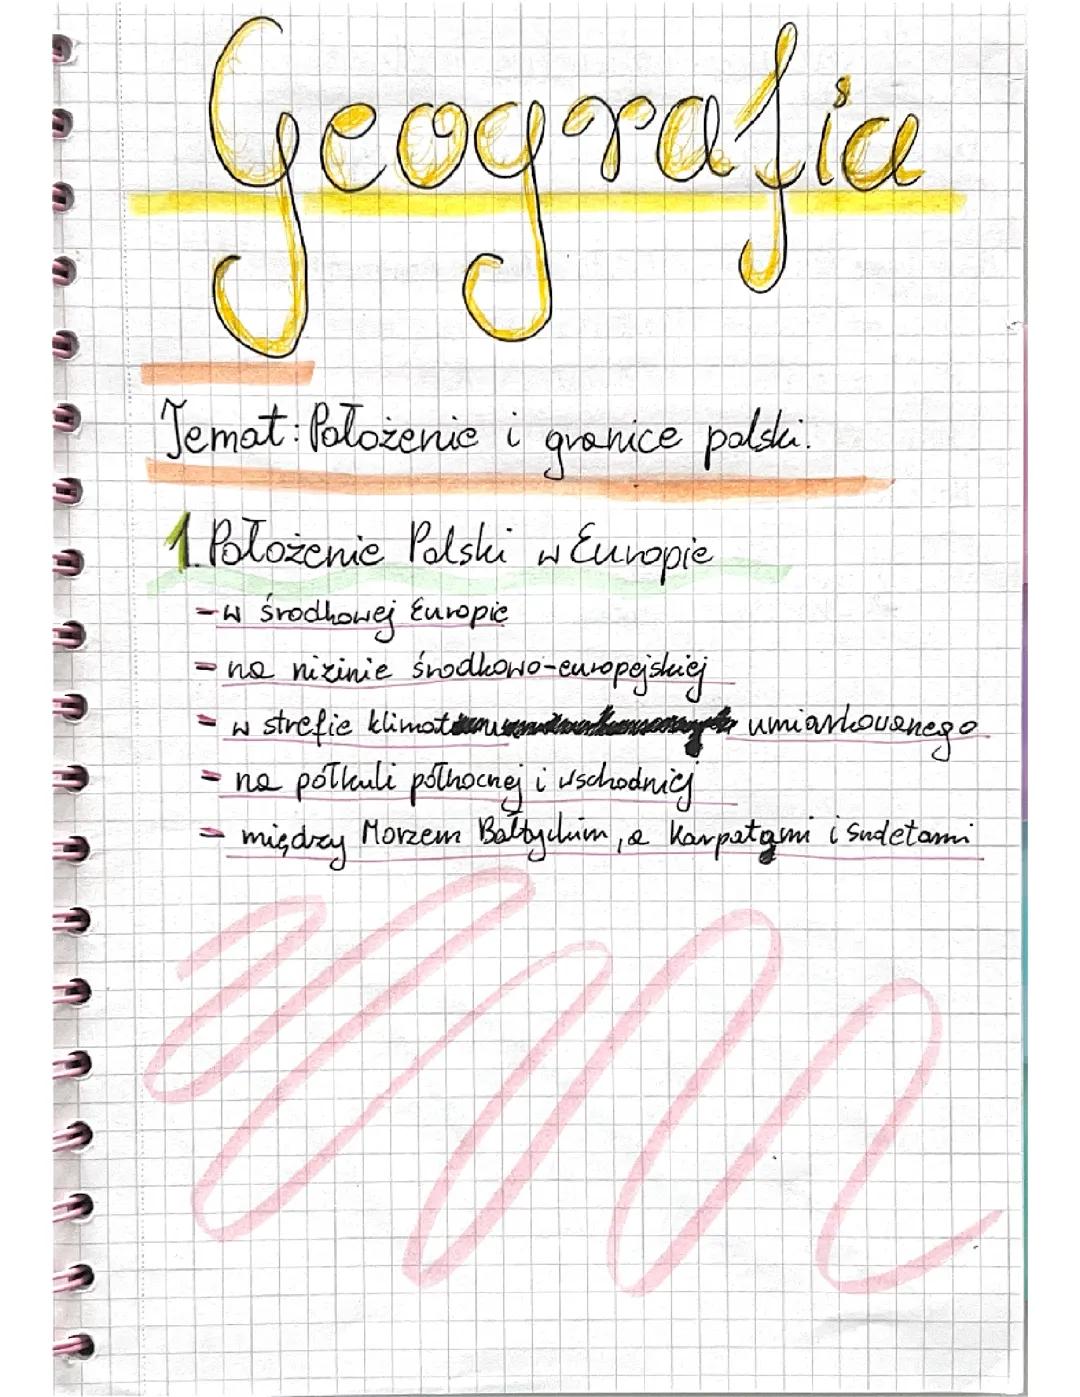 Geografia
Temat: Położenie i granice polski.
1. Położenie Polski w Europie
- w środkowej Europie
- na nizinie środkowo-europejskiej
- w strefie klimat umiarkowanego
- na półkuli północnej i wschodniej
- między Morzem Bałtyckim, a Karpatami i Sudetami